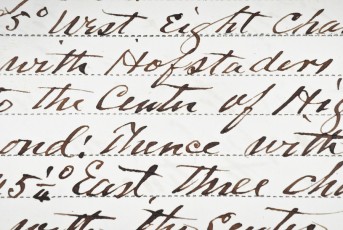 5° West, Eight Cha
with Hofstaders
to the Center of Hig
ond; Thence with
45 1/4° East, Three cha
with the Centre